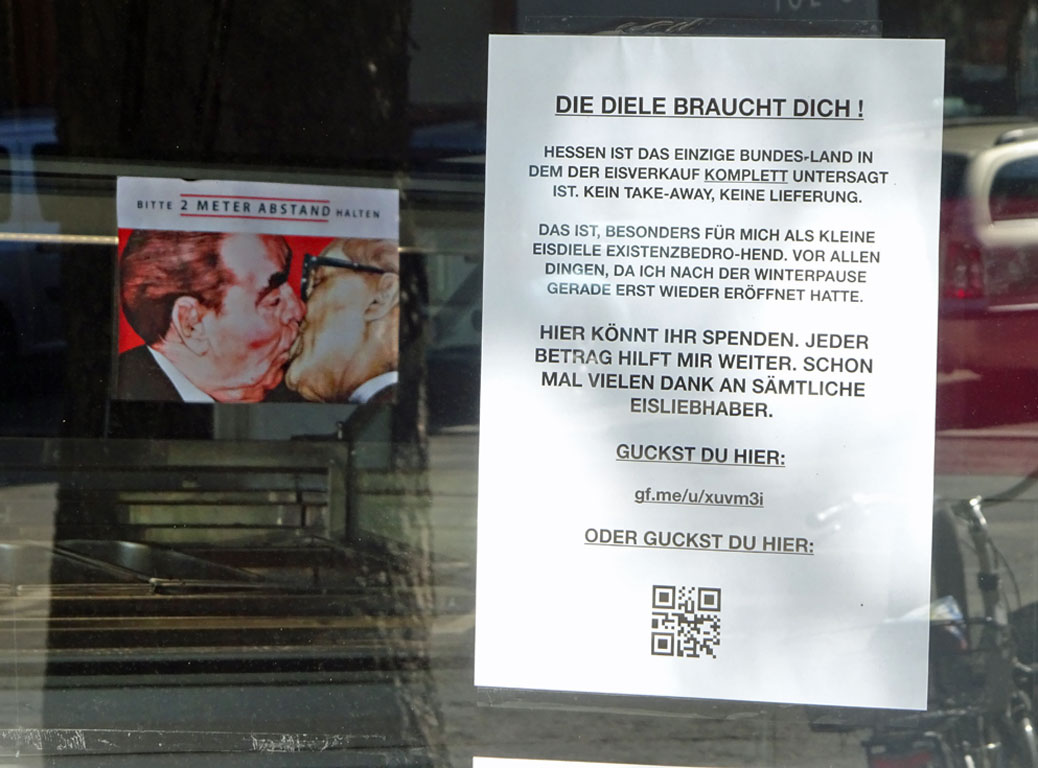 BITTE 2 METER ABSTAND HALTEN
DIE DIELE BRAUCHT DICH !
HESSEN IST DAS EINZIGE BUNDES-LAND IN
DEM DER EISVERKAUF KOMPLETT UNTERSAGT
IST. KEIN TAKE-AWAY, KEINE LIEFERUNG.
DAS IST, BESONDERS FÜR MICH ALS KLEINE
EISDIELE EXISTENZBEDRO-HEND. VOR ALLEN
DINGEN, DA ICH NACH DER WINTERPAUSE
GERADE ERST WIEDER ERÖFFNET HATTE.
HIER KÖNNT IHR SPENDEN. JEDER
BETRAG HILFT MIR WEITER. SCHON
MAL VIELEN DANK AN SÄMTLICHE
EISLIEBHABER.
GUCKST DU HIER:
gf.me/u/xuvm3i
ODER GUCKST DU HIER: